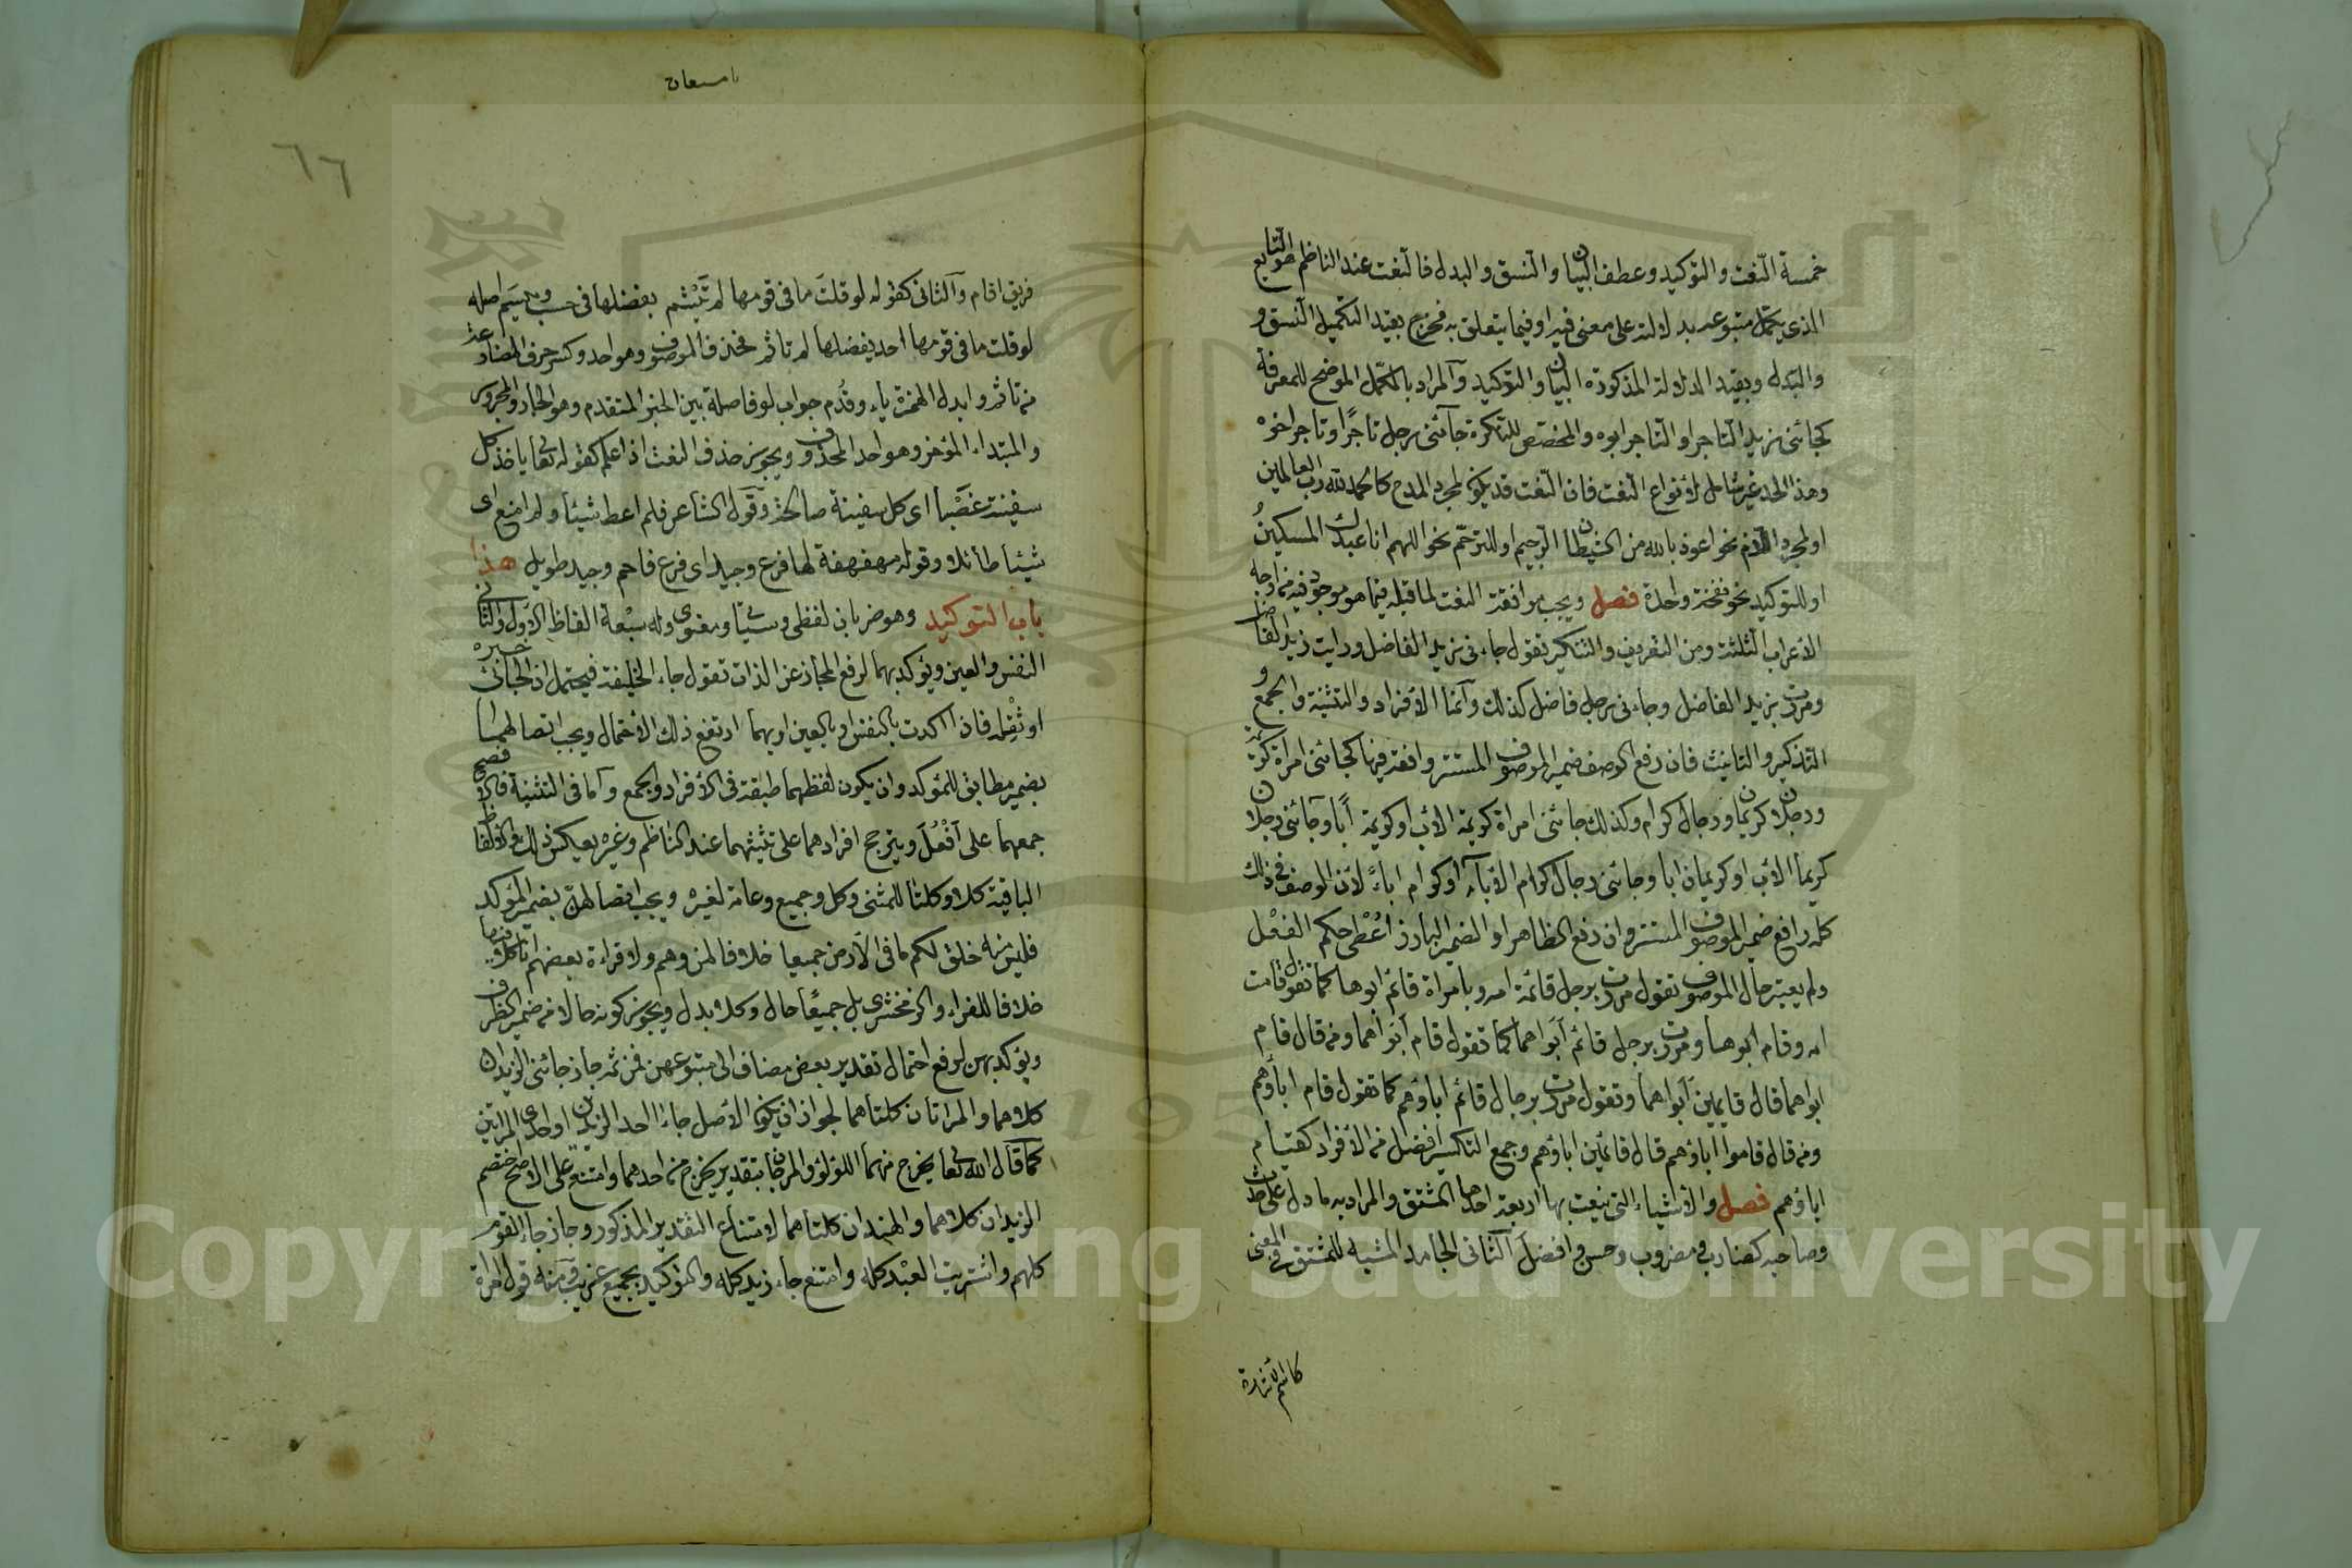 خمسة النعت والتوكيد وعطف البيان والنسق والبدل فالنعت عند الناظم هو التابع
الذي يكمل متبوعه بدلالته على معنى فيه او فيما يتعلق به فخرج بقيد التكميل النسق و
والبدل وبقيد الدلالة المذكورة البيان والتوكيد والمراد بالمكمل الموضح للمعرفة
كجائني زيد التاجر او التاجر ابوه والمخصص للنكرة جآئني رجل تاجرًا وتاجر اخوه
وهذا الحد غير شامل لانواع النعت فان النعت قد يكون لمجرد المدح كالحمد لله رب العالمين
او لمجرد الذم نحو اعوذ بالله من الشيطان الرجيم او للترحم نحو اللهم انا عبدك المسكينُ
او للتوكيد نحو نفخة واحدة فصل ويجب موافقة النعت لما قبله فيما هو موجود فيه من اوجه
الاعراب الثلثة ومن التعريف والتنكير تقول جاءني زيد الفاضل ورايت زيد الفاضل
ومررت بزيد الفاضل وجاءني رجل فاضل كذلك وآمّا الافراد والتثنية والجمع و
التذكير والتانيث فان رفع الوصف ضمير الموصوف المستتر وافقه فيها كجائتني امرأة كريمة
ورجلان كريمان ورجال كرام وكذلك جائتني امراة كريمة الاب او كريمة ابًا وجآئني رجلان
كريما الاب او كريمان ابا وجائني رجال كرام الابآء او كرام اباءً لان الوصف في ذلك
كله رافع ضمير الموصوف المستتر وان رفع الظاهر او الضمير البارز اُعْطِى حكم الفعْل
ولم يعتبر حال الموصوف تقول مررت برجل قائمة امه وبامراة قائم ابوها كما تقول قامت
امه وقام ابوها ومررت برجل قائم اَبَواهما كما تقول قام اَبَواهما ومن قال قام
ابواهما قال قايمين اَبَواهما وتقول مررت برجال قائم اباؤهم كما تقول قام اباؤهم
ومن قال قاموا اباؤهم قال قائمين اباؤهم وجمع التكسير افضل من الافراد كقيام
اباؤهم فصل والاشياء التي ينعت بها اربعة احدها المشتق والمراد به ما دل على حدث
وصاحبه كضارب ومضروب وحسن وافضل الثاني الجامد المشبه للمشتق في المعنى
كاسم الاشارة
٦٦
فريق اقام والثاني كقوله لو قلتَ ما في قومها لم تِيْثم يفضلها في حسب وميسم اصله
لو قلت ما في قومها احد يفضلها لم تاثم فحذف الموصوف وهو احد وكسر حرف المضارعة
من تاثم وابدل الهمزة ياء وقُدم جواب لو فاصلة بين الخبر المتقدم وهو الجار والمجرور
والمبتداء المؤخر وهو احد المحذوف ويجوز حذف النعت اذا علم كقوله تعا ياخذ كل
سفينة غصْبا اى كل سفينة صالحة وقول الشاعر فلم اعط شيئا ولم امنع اى
شيئا طائلا وقوله مهفهفة لها فرع وجيد اى فرع فاحم وجيد طويل هذا
باب التوكيد وهو ضربان لفظى وسيأتي ومعنوى وله سبْعة الفاظ الاول والثاني
النفس والعين ويؤكد بهما لرفع المجاز عن الذات تقول جاء الخليفة فيحتمل ان الجائى خبره
او ثِقْله فاذا اكدت بالنفس او بالعين او بهما ارتفع ذلك الاحتمال ويجب اتصالهما
بضمير مطابق للمؤكد وان يكون لفظهما طبقه في الافراد والجمع وآما في التثنية فالافصح
جمعهما على اَفْعُل ويترجح افرادهما على تثنيتهما عند الناظم وغيره يعكس ذلك والالفاظ
الباقية كلا وكلتا للمثنى وكل وجميع وعامة لغيره ويجب اتصالهن بضمير المؤكد
فليس منه خلق لكم ما في الارض جميعا خلافا لمن وهم ولا قراءة بعضهم انا كلا فيها
خلافا للفراء والزمخشرى بل جميعًا حال وكلا بدل ويجوز كونه حالا من ضمير الظرف
ويؤكد بهن لرفع احتمال تقدير بعض مضاف الى متبوعهن فمن ثم جاز جائني الزيدان
كلاهما والمراتان كلتاهما لجواز ان يكون الاصل جاء احد الزيدين او احدى المراتين
كما قال الله تعا يخرج منهما اللؤلؤ والمرجان بتقدير يخرج من احدهما وامتنع على الاصح اختصم
الزيدان كلاهما والهندان كلتاهما لامتناع التقدير المذكور وجاز جاء القوم
كلهم واشتريت العبْد كله وامتنع جاء زيد كله والتوكيد بجميع غريب ومنه قول امراة